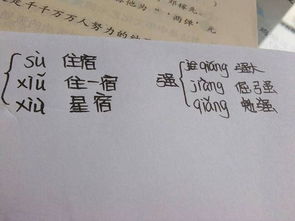 是千千万万人努力的
sù 住宿
xiǔ 住一宿
xiù 星宿
强
qiáng 强大
jiàng 倔强
qiǎng 勉强